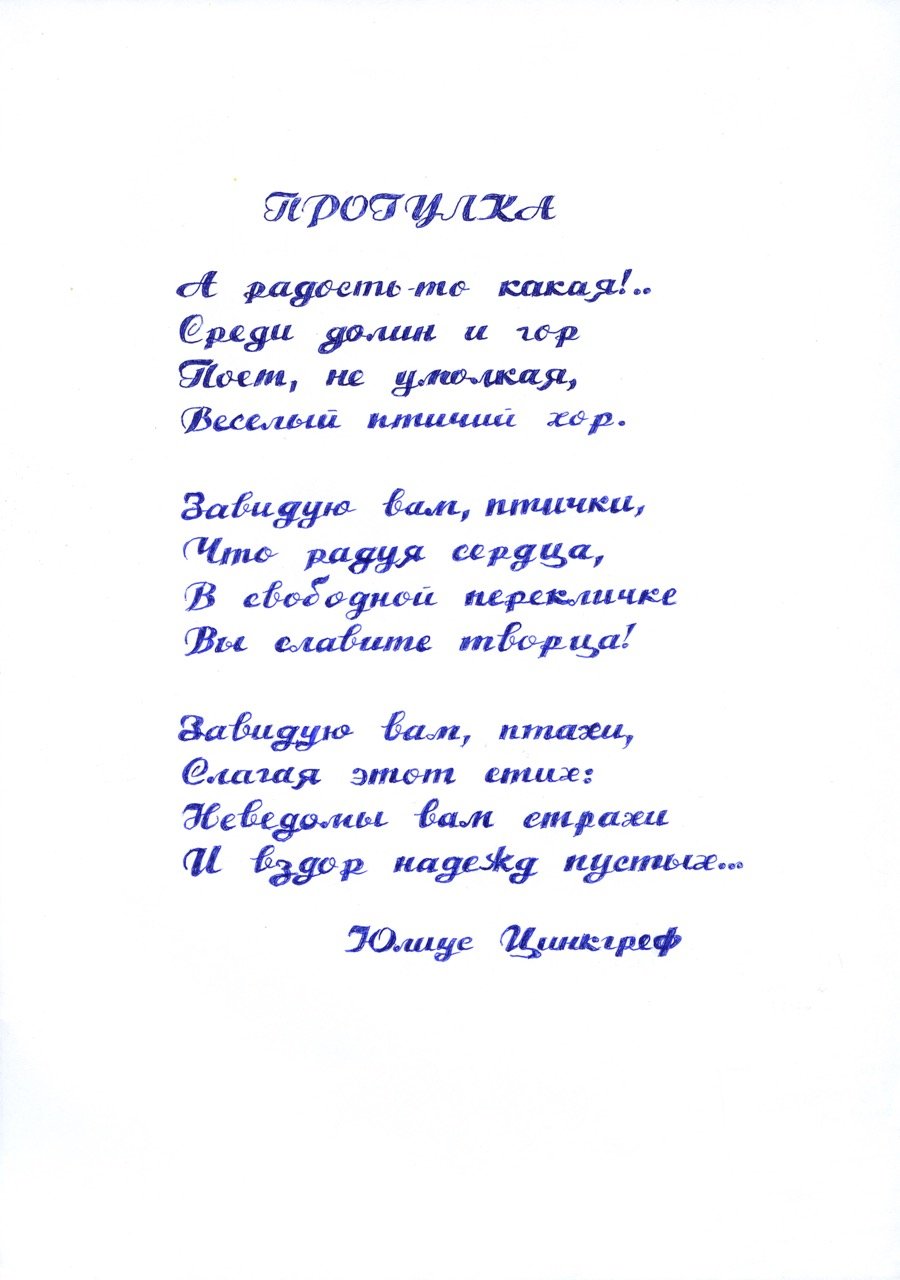 ПРОГУЛКА
А радость-то какая!..
Среди долин и гор
Поет, не умолкая,
Веселый птичий хор.
Завидую вам, птички,
Что радуя сердца,
В свободной перекличке
Вы славите творца!
Завидую вам, птахи,
Слагая этот стих:
Неведомы вам страхи
И вздор надежд пустых...
Юлиус Цинкгреф